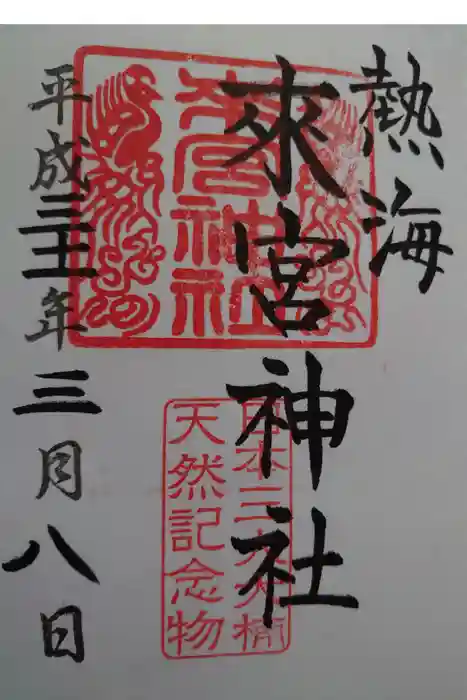 熱海
來宮神社
平成三十一年三月八日
來宮神社
日本三大大楠
天然記念物